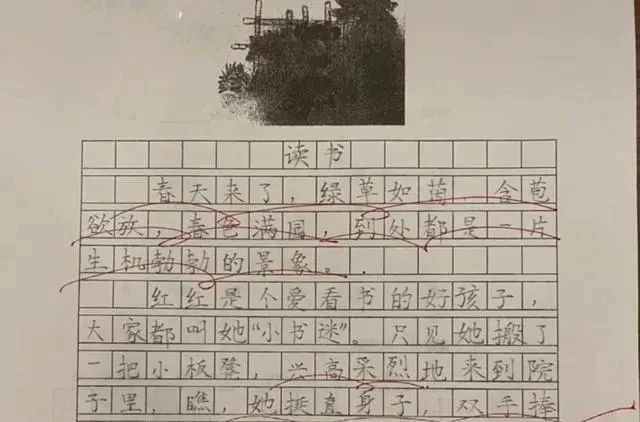 读书
春天来了，绿草如茵 含苞
欲放，春色满园，到处都是一片
生机勃勃的景象。
红红是个爱看书的好孩子，
大家都叫她“小书迷”。只见她搬了
一把小板凳，兴高采烈地来到院
子里，瞧，她挺直身子，双手捧